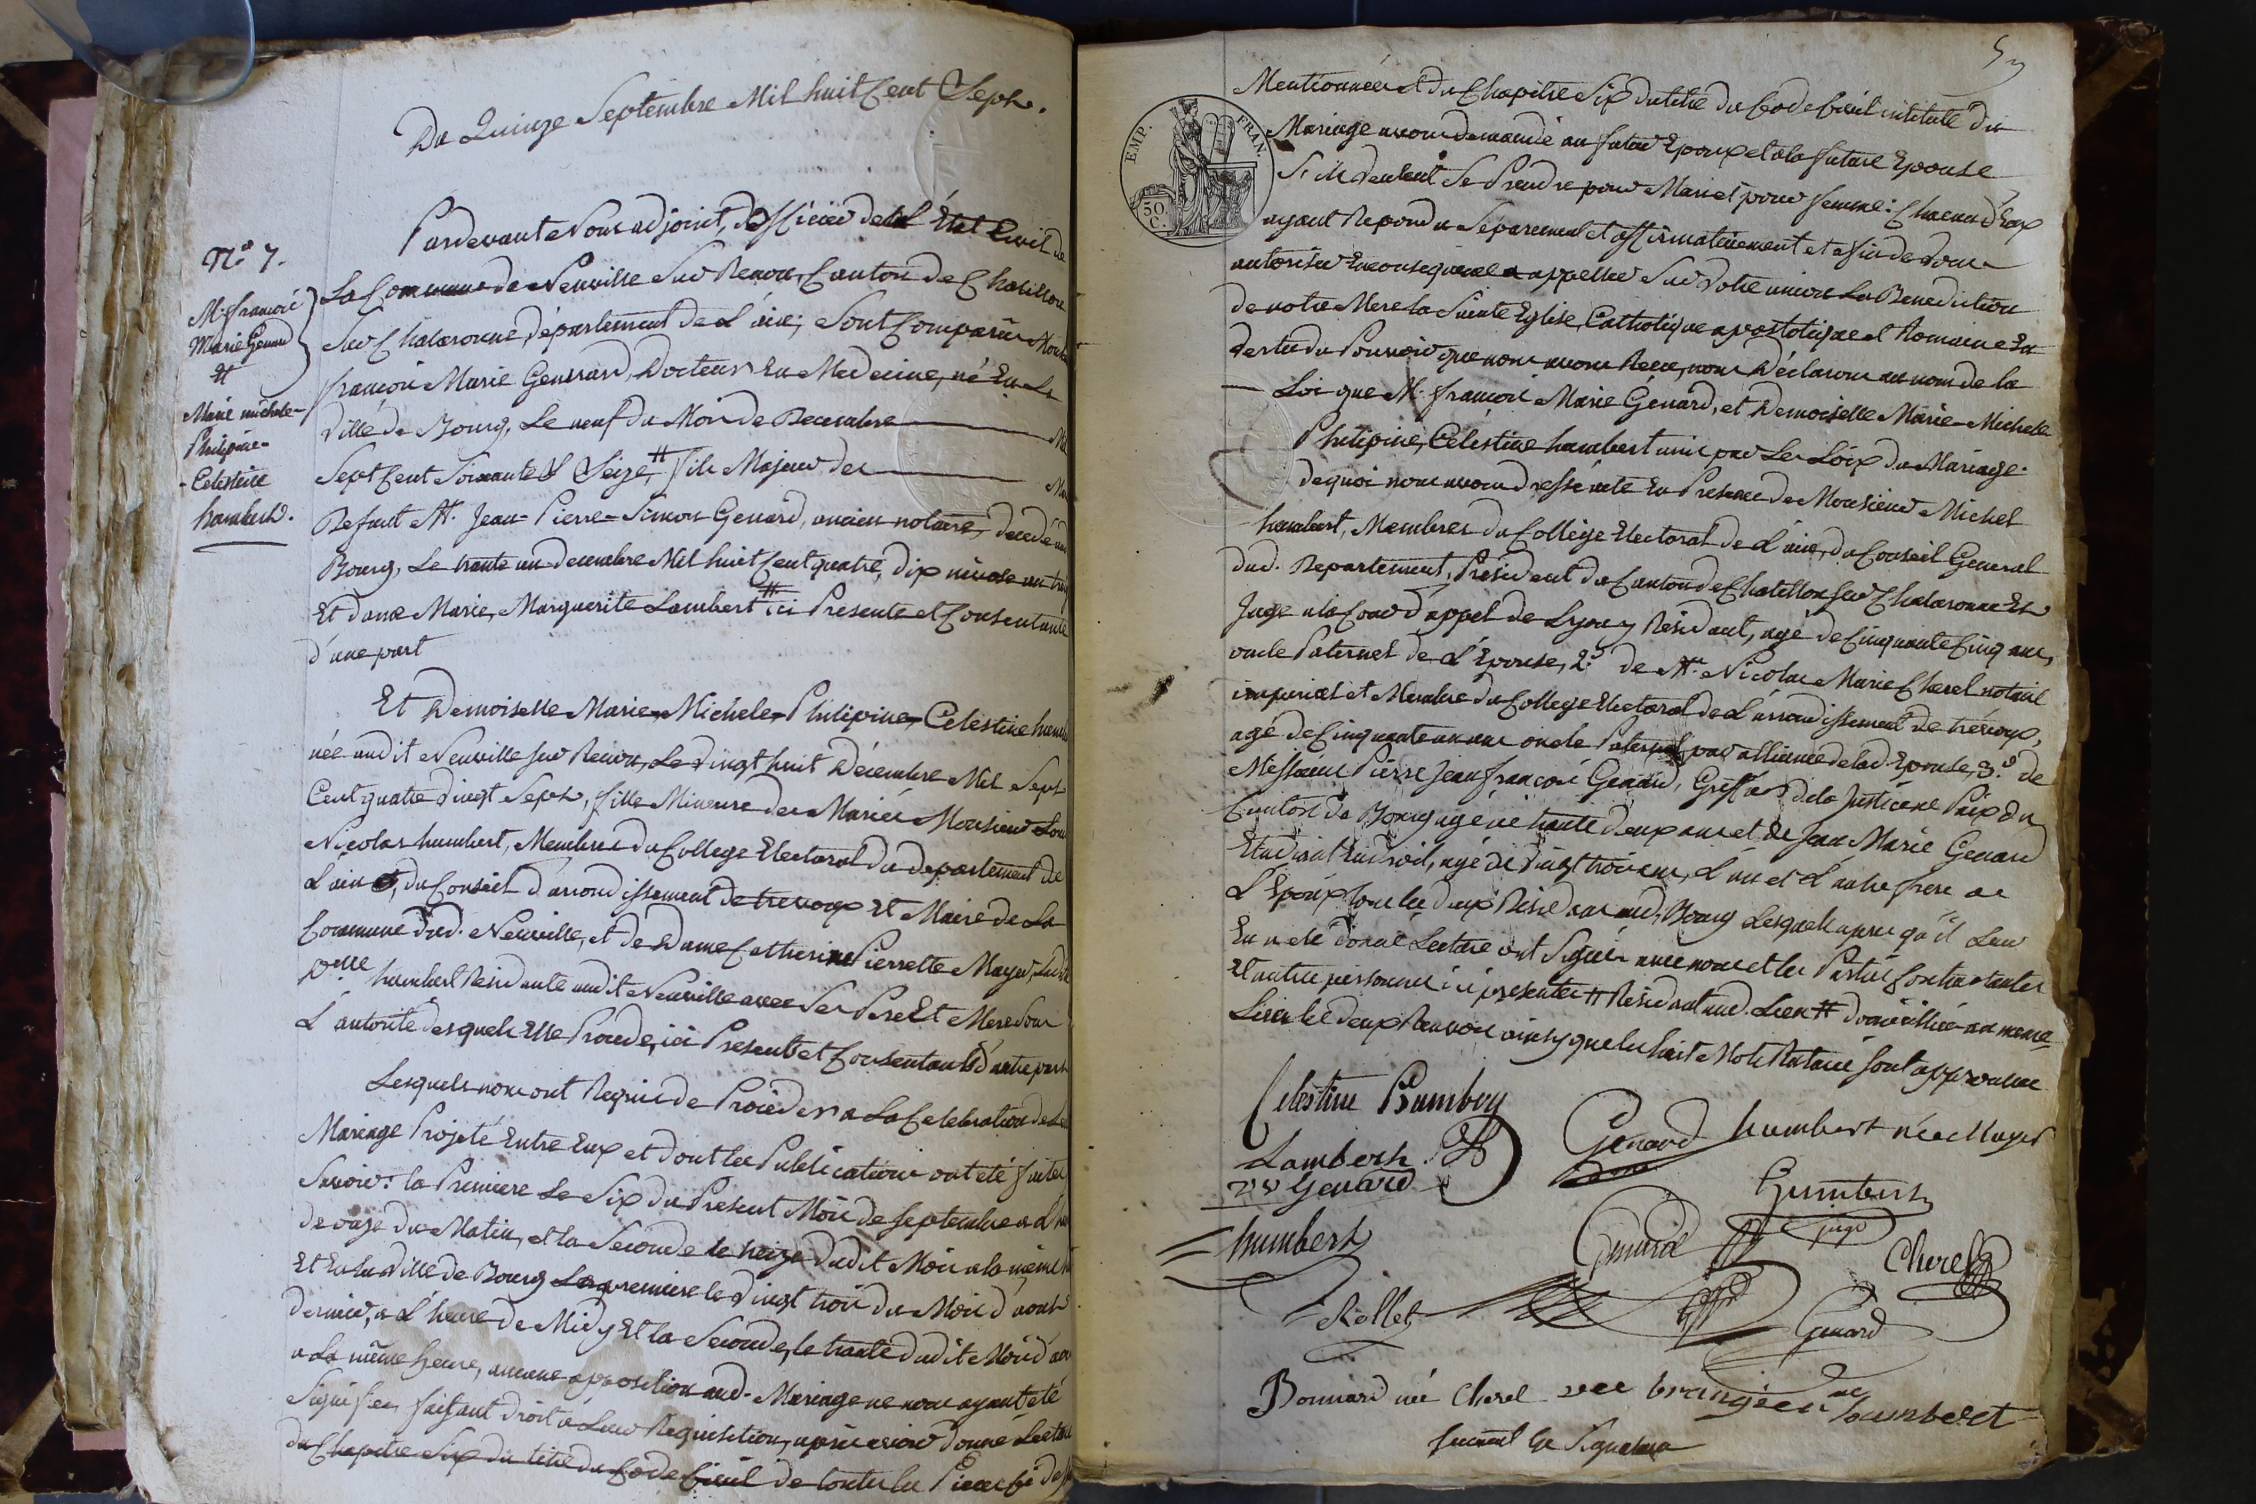 Du Quinze Septembre Mil huit Cent Sept.
Pardevant Nous adjoint, d'officier de l'État Civil de
La Commune de Neuville Sur Renom, Canton de Chatillon
Sur Chalaronne, département de L'ain; Sont Comparus
françois Marie Genard, Docteur En Medecine, né En La
Ville de Bourg, Le neuf du Mois de Decembre Mil
Sept Cent Soixante & Seize, # fils Majeur des
Defunt M. Jean-Pierre-Simon Genard, ancien notaire, decedé
Bourg, Le trente un decembre Mil huit Cent quatre, dix nivose an
Et dame Marie, Marguerite Lambert # ici Presente et Consentante
d'une part
Nº 7.
M. françois
Marie Genard
Et
Marie michele
Philipine
Celestine
humbert.
Et Demoiselle Marie-Michele-Philipine, Celestine
née audit Neuville sur Renom, Le Vingt huit Décembre Mil Sept
Cent quatre vingt Sept, fille Mineure des Mariés Monsieur
Nicolas humbert, Membre du College Electoral du departement de
L'ain &, du Conseil d'arrondissement de trevoux Et Maire de La
Commune dud. Neuville, et de Dame Catherine Pierrette Mayer,
Dlle humbert Residante audit Neuville avec Ses Pere Et Mere Sous
L'autorité desquels Elle Procede, ici Presents et Consentants d'autre part
Lesquels nous ont Requis de Procéder a La Celebration de
Mariage Projeté Entre Eux et dont les Publications ont eté faites
Savoir: la Premiere Le Six du Present Mois de Septembre a
de onze du Matin, et la Seconde le treize dudit Mois a la même
Et En La Ville de Bourg La premiere le Vingt trois du Mois d'aout
dernier, a L'heure de Midy Et la Seconde, le trente dudit Mois
a La même heure, aucune opposition aud. Mariage ne nous ayant eté
Signifiée, faisant droit a Leur Requisition, après avoir donné
du Chapitre Six du titre du Code Civil de toutes les Pieces
Mentionnées et du Chapitre Six du titre du Code Civil intitulé du
Mariage avons demandé au futur Epoux et a la future Epouse
S'ils Veulent Se Prendre pour Mari et pour femme: Chacun d'Eux
ayant Repondu Séparement et affirmativement et afin de vous
autoriser En consequence a appeller Sur Votre union La Benediction
de notre Mere la Sainte Eglise, Catholique apostolique et Romaine En
Vertu du Pouvoir que nous avons Recu, nous Déclarons au nom de la
Loi que M. françois Marie Génard, et Demoiselle Marie-Michele
Philipine, Celestine humbert unis par Les Loix du Mariage.
de quoi nous avons dressé acte En Presence de Monsieur Michel
humbert, Membres du Collège Electoral de L'ain, du Conseil General
dud. Departement, Président du Canton de Chatillon sur Chalaronne Et
Juge a la Cour d'appel de Lyon y Residant, agé de Cinquante Cinq ans,
oncle Paternel de L'Epouse, 2.º de M. Nicolas Marie Cherel notaire
imperial et Membre du College Electoral de L'arrondissement de trévoux,
agé de Cinquante ans oncle Paternel par alliance de lad. Epouse, 3.º de
Messieurs Pierre Jean françois Genard, Greffier de la Justice de Paix du
Canton de Bourg agé de trente deux ans et de Jean Marie Genard
Etudiant En droit, agé de Vingt trois ans, L'un et L'autre frere de
L'Epoux tous les deux Residans aud. Bourg Lesquels apres qu'il Leur
En a été donné Lecture ont Signés avec nous et les Parties Contractantes
Et autres personnes ici presentes # Residant aud. Lieu # domiciliée au meme
Lieu les deux Renvois ainsy que les huit Mots Raturés sont approuvés
Celestine humbert
Genard
humbert née Mayer
Lambert
vve Genard
humbert
juge
humbert
Genard
Cherel
Rollet
Genard
Bonnard née Cherel
humbert
suivent les Signatures
EMP. FRAN.
50.
C.